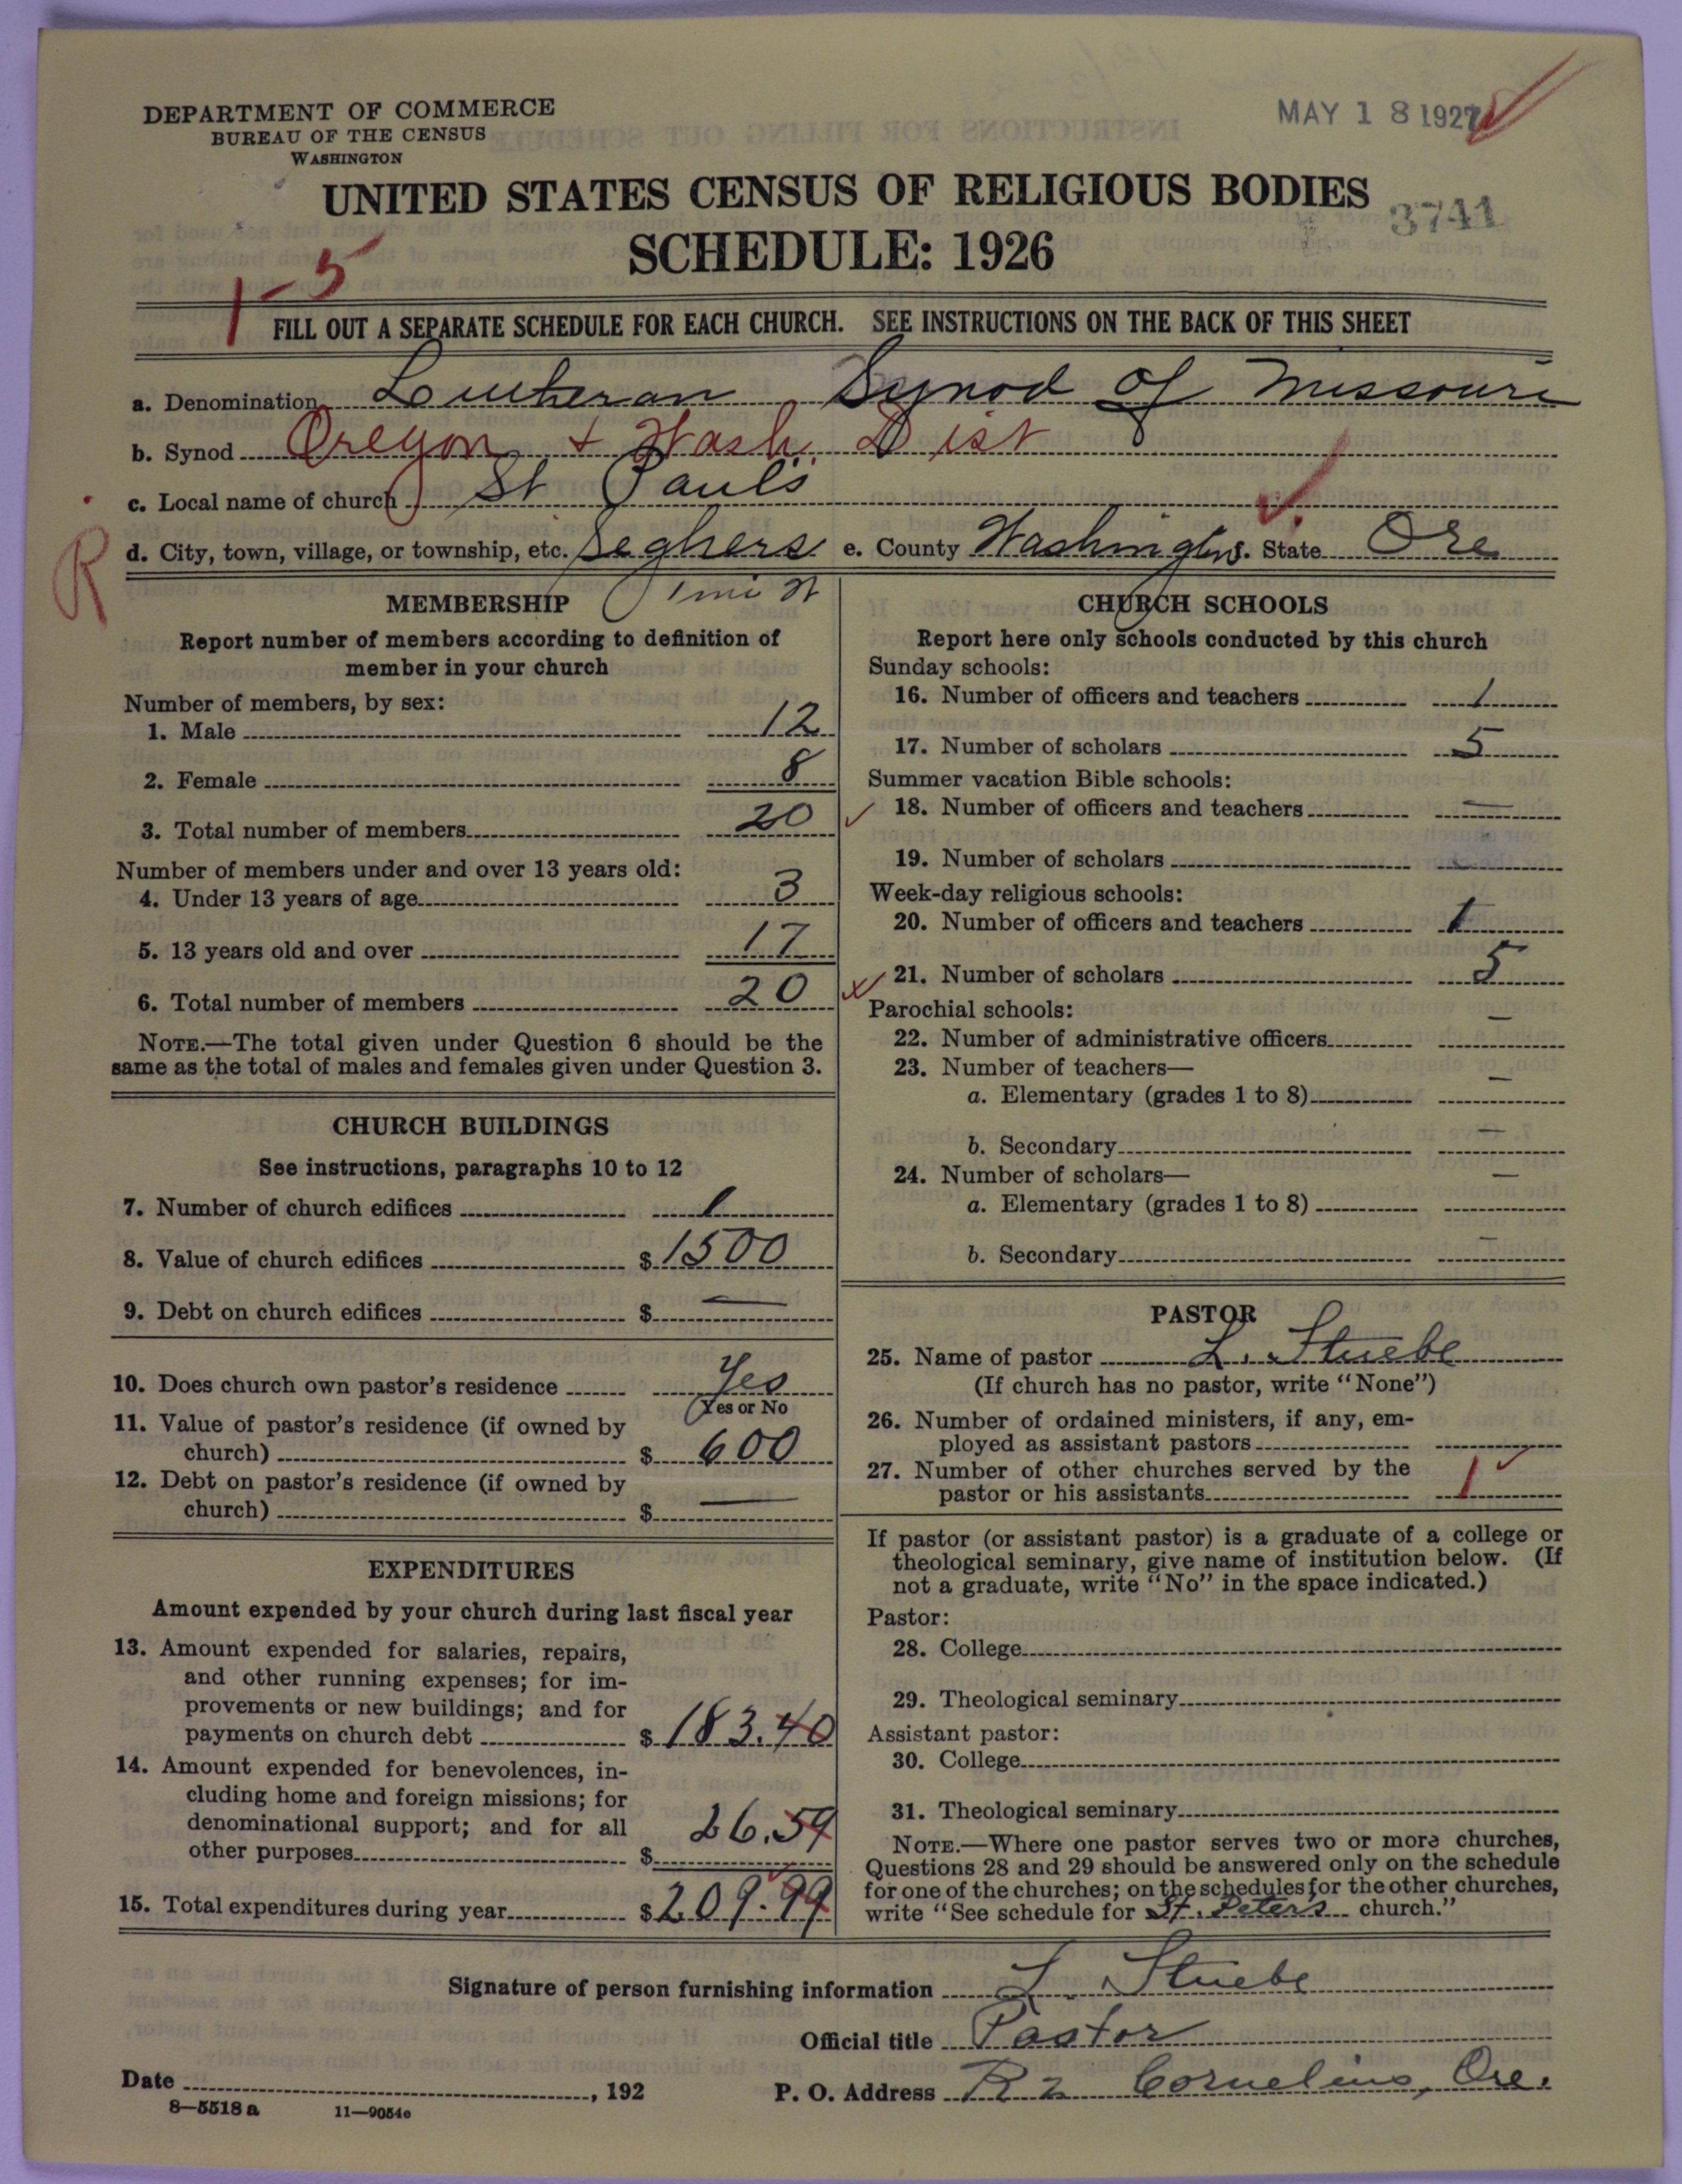 DEPARTMENT OF COMMERCE
BUREAU OF THE CENSUS
WASHINGTON
MAY 18 1927
UNITED STATES CENSUS OF RELIGIOUS BODIES
3741
SCHEDULE: 1926
1-5
FILL OUT A SEPARATE SCHEDULE FOR EACH CHURCH. SEE INSTRUCTIONS ON THE BACK OF THIS SHEET
a. Denomination Lutheran Synod of Missouri
b. Synod Oregon + Wash. Dist
c. Local name of church St Paul's
R
d. City, town, village, or township, etc. Seghers e. County Washington f. State Ore
1 mi
MEMBERSHIP
Report number of members according to definition of
member in your church
Number of members, by sex:
1. Male 12
2. Female 8
3. Total number of members 20
Number of members under and over 13 years old:
4. Under 13 years of age 3
5. 13 years old and over 17
6. Total number of members 20
NOTE.—The total given under Question 6 should be the
same as the total of males and females given under Question 3.
CHURCH BUILDINGS
See instructions, paragraphs 10 to 12
7. Number of church edifices 1
8. Value of church edifices $1500
9. Debt on church edifices $ —
10. Does church own pastor's residence Yes
(Yes or No
11. Value of pastor's residence (if owned by
church) $ 600
12. Debt on pastor's residence (if owned by
church) $ —
EXPENDITURES
Amount expended by your church during last fiscal year
13. Amount expended for salaries, repairs,
and other running expenses; for im-
provements or new buildings; and for
payments on church debt $183.40
14. Amount expended for benevolences, in-
cluding home and foreign missions; for
denominational support; and for all
other purposes $ 26.59
15. Total expenditures during year $209.99
CHURCH SCHOOLS
Report here only schools conducted by this church
Sunday schools:
16. Number of officers and teachers 1
17. Number of scholars 5
Summer vacation Bible schools:
18. Number of officers and teachers —
19. Number of scholars —
Week-day religious schools:
20. Number of officers and teachers 1
21. Number of scholars 5
Parochial schools:
22. Number of administrative officers —
23. Number of teachers—
a. Elementary (grades 1 to 8) —
b. Secondary —
24. Number of scholars—
a. Elementary (grades 1 to 8) —
b. Secondary —
PASTOR
25. Name of pastor L. Stuebe
(If church has no pastor, write "None")
26. Number of ordained ministers, if any, em-
ployed as assistant pastors
27. Number of other churches served by the
pastor or his assistants 1
If pastor (or assistant pastor) is a graduate of a college or
theological seminary, give name of institution below. (If
not a graduate, write "No" in the space indicated.)
Pastor:
28. College
29. Theological seminary
Assistant pastor:
30. College
31. Theological seminary
NOTE.—Where one pastor serves two or more churches,
Questions 28 and 29 should be answered only on the schedule
for one of the churches; on the schedules for the other churches,
write "See schedule for St. Peter's church."
Signature of person furnishing information L. Stuebe
Official title Pastor
Date , 192
P. O. Address R 2 Cornelius, Ore.
8—5518 a 11—9054e